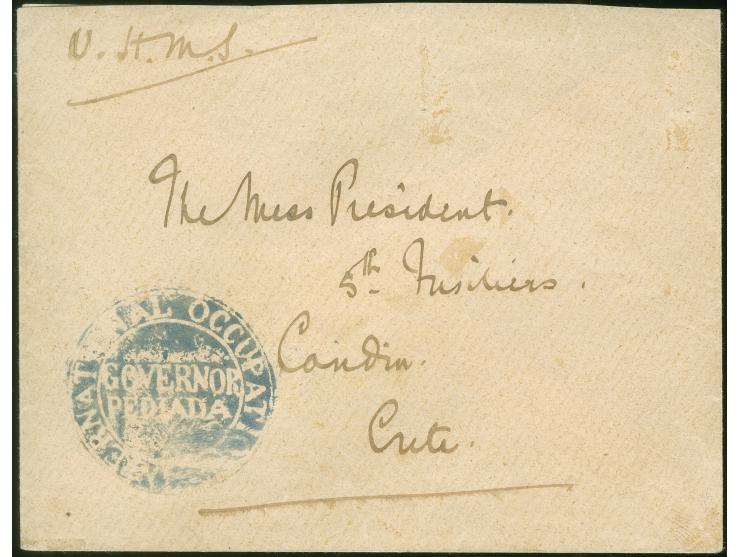 O.H.M.S.
The Mess President.
5th Fusiliers.
Candia.
Crete.
INTERNATIONAL OCCUPATIO
GOVERNOR
PEDIADA